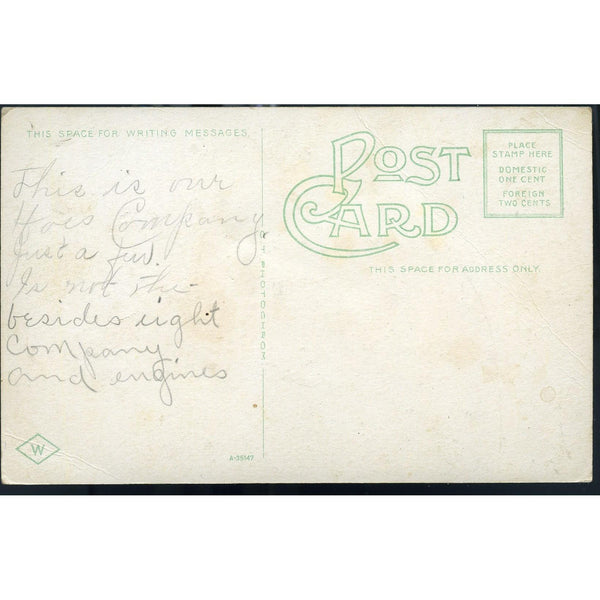 THIS SPACE FOR WRITING MESSAGES.
POST CARD
PLACE
STAMP HERE
DOMESTIC
ONE CENT
FOREIGN
TWO CENTS
THIS SPACE FOR ADDRESS ONLY.
This is our
Hoes Company
Just a few.
Is not the
besides eight
Company
and engines
PHOTOCHROM
W
A-35147